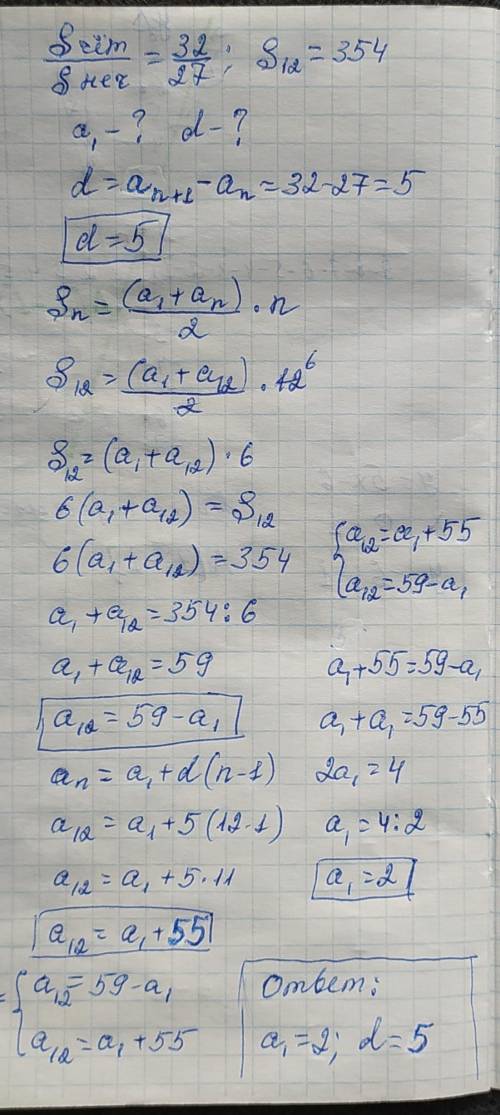 Sчёт/Sнеч = 32/27; S₁₂ = 354
a₁ - ? d - ?
d = aₙ₊₁ - aₙ = 32 - 27 = 5
d = 5
Sₙ = (a₁ + aₙ)/2 · n
S₁₂ = (a₁ + a₁₂)/2 · 12⁶
S₁₂ = (a₁ + a₁₂) · 6
6(a₁ + a₁₂) = S₁₂
6(a₁ + a₁₂) = 354
a₁ + a₁₂ = 354 : 6
a₁ + a₁₂ = 59
a₁₂ = 59 - a₁
aₙ = a₁ + d(n-1)
a₁₂ = a₁ + 5(12-1)
a₁₂ = a₁ + 5·11
a₁₂ = a₁ + 55
= { a₁₂ = 59 - a₁
a₁₂ = a₁ + 55
{ a₁₂ = a₁ + 55
a₁₂ = 59 - a₁
a₁ + 55 = 59 - a₁
a₁ + a₁ = 59 - 55
2a₁ = 4
a₁ = 4 : 2
a₁ = 2
Ответ:
a₁ = 2; d = 5